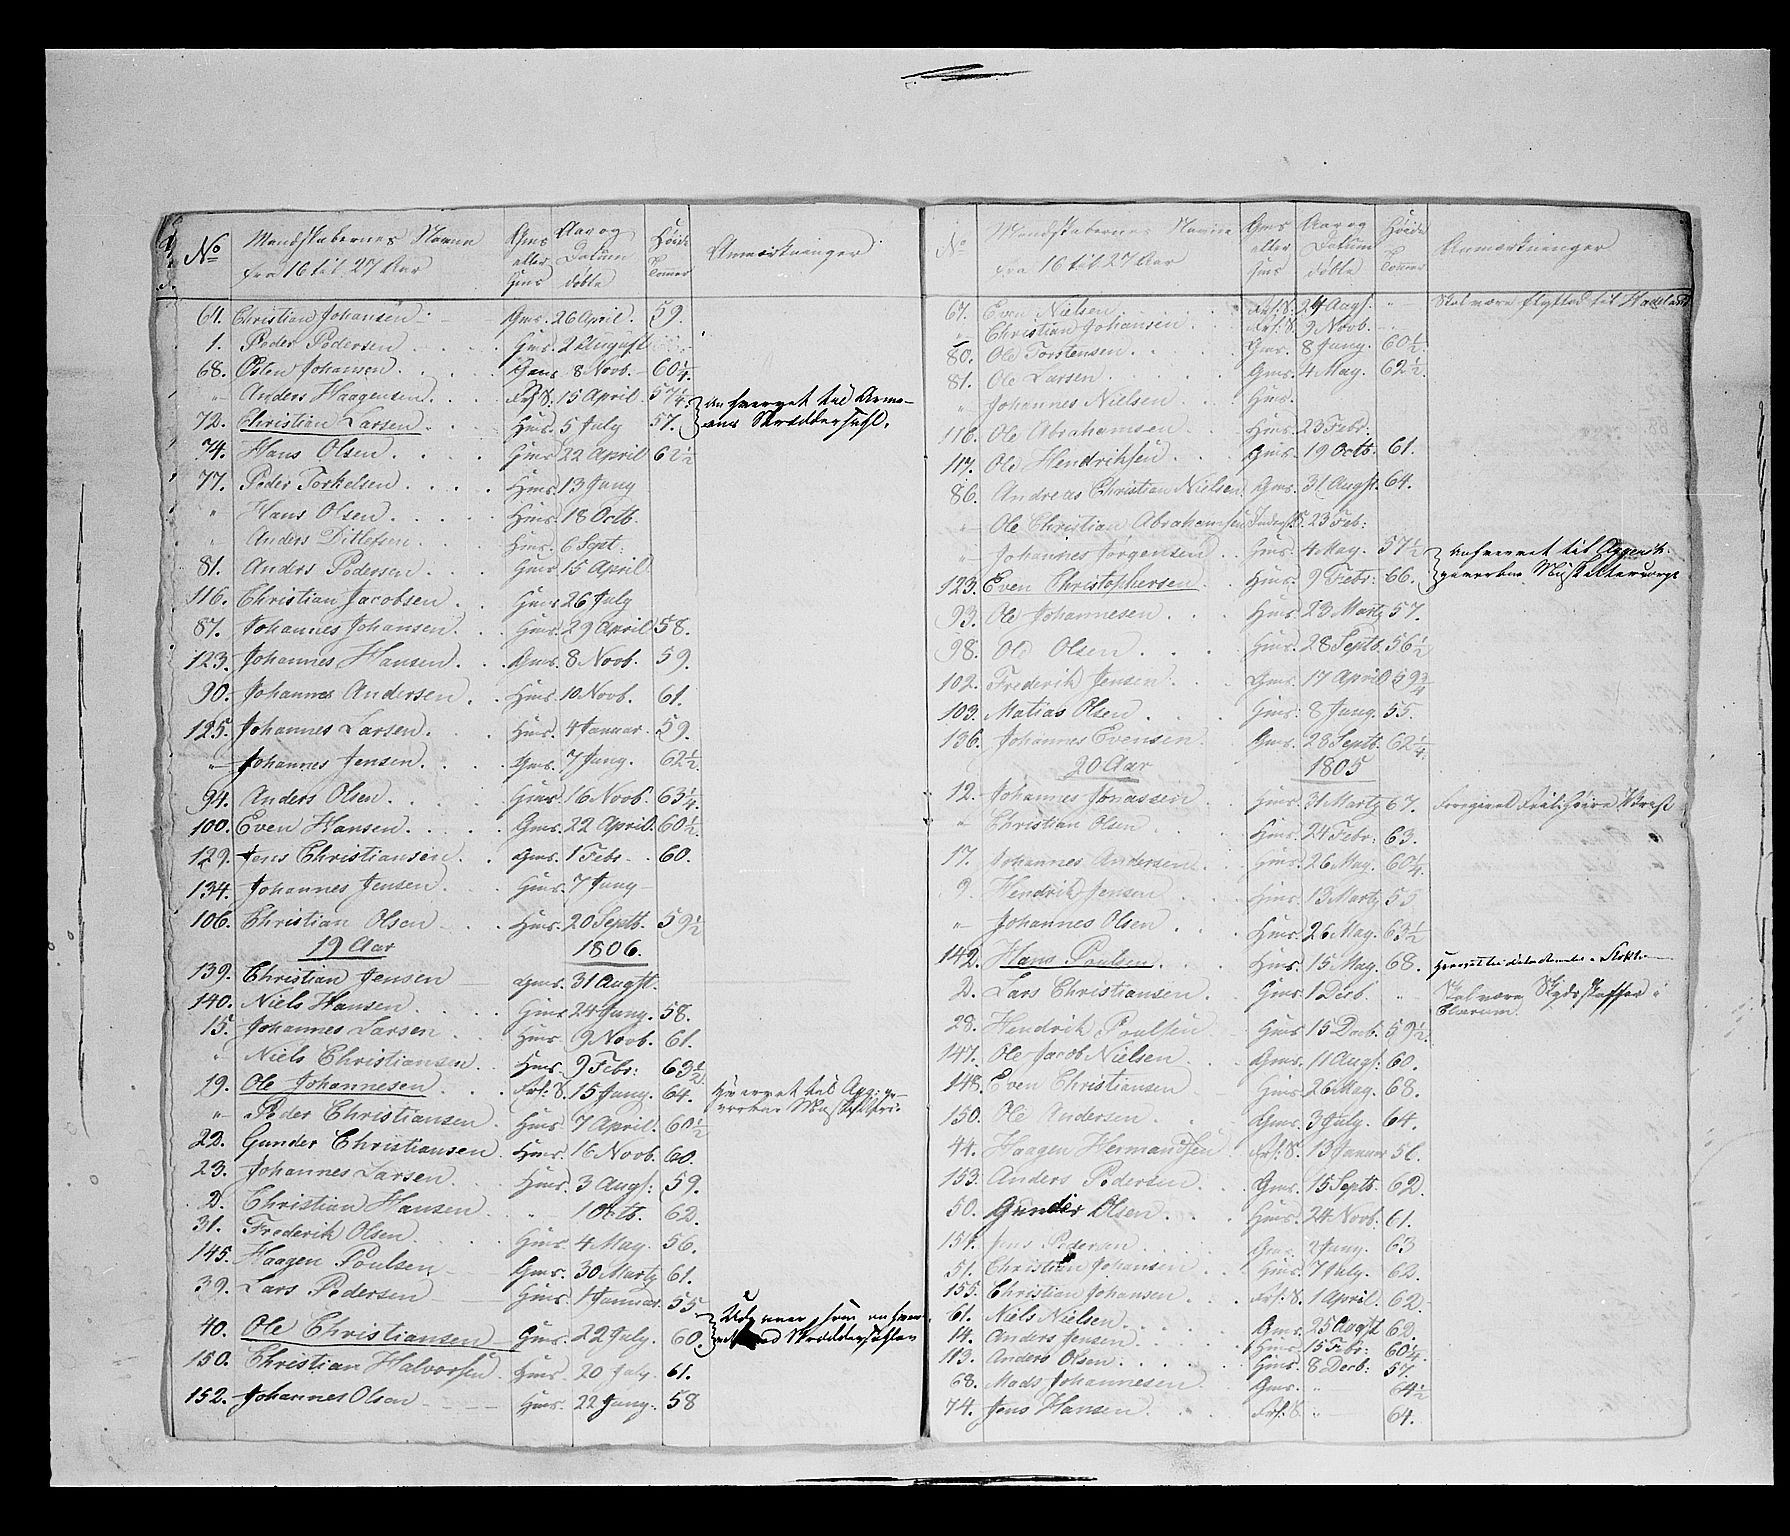 No Mandskabernes Navne Gms Aar og Höide Anmærkninger
fra 16 til 27 Aar eller Datum Tomer
Hms döbte
61. Christian Johansen Gms. 26 April. 59.
1. Peder Pedersen Hms. 2 August
68. Osten Johansen Gms 8 Novb. 60 1/4.
" Anders Haagensen Frf. S. 15 April 57 1/4.
72. Christian Larsen Hms. 5 July 57.
74. Hans Olsen Hms 22 April 61 1/2
77. Peder Torkelsen Hms. 13 Juny
" Hans Olsen Hms. 18 Octb.
" Anders Ditlefsen Hms. 6 Sept:
81. Anders Pedersen Hms 15 April
116. Christian Jacobsen Hms 26 July
87. Johannes Johansen Hms. 29 April 58.
123. Johannes Hansen Gms. 8 Novb. 59.
90. Johannes Andersen Hms. 10 Novb. 61.
125. Johannes Larsen Hms. 4 Januar. 59.
" Johannes Jensen Gms. 7 Juny. 62 1/2
94. Anders Olsen Hms. 16 Novb. 63 1/4.
100. Even Hansen Gms. 22 April. 60 1/2.
129. Jens Christiansen Gms. 1 Febr 60.
134. Johannes Jensen Hms. 7 Juny
106. Christian Olsen Hms. 20 Septb. 59 1/2
19 Aar 1806.
139. Christian Jensen Gms. 31 Augst.
140. Niels Hansen Hms 24 Juny. 58.
15. Johannes Larsen Hms. 9 Novb. 61.
" Niels Christiansen Hms. 9 Febr: 63 1/2
19. Ole Johannesen Frf. S. 15 Juny. 64.
" Peder Christiansen Hms. 7 April. 60 1/2
22. Gunder Christiansen Hms. 16 Novb. 60.
23. Johannes Larsen. Hms. 3 Augs: 59.
2. Christian Hansen " 1 Octb. 62.
31. Frederik Olsen Hms. 4 May. 56.
145. Haagen Poulsen Gms. 30 Marty 61.
39. Lars Pedersen Hms. 1 Januar. 55
40. Ole Christiansen Gms. 22 July. 60.
150. Christian Halvorsen Hms. 20 July. 61.
152. Johannes Olsen Hms. 22 Juny. 58
No Mandskabernes Navne Gms Aar og Höide Anmærkninger
fra 16 til 27 Aar eller Datum Tomer
Hms döbte
67. Even Nielsen Frf. S. 24 Augs: " Skal være flyttet til Hadeland
" Christian Johansen Frf. S. 9 Novb.
80. Ole Torstensen Gms. 8 Juny. 60 1/2.
81. Ole Larsen Gms. 4 May. 62 1/2.
" Johannes Nielsen Hms.
116. Ole Abrahamsen Hms. 23 Febr:
117. Ole Hendriksen Gms. 19 Octb. 61.
86. Andreas Christian Nielsen Gms. 31 Augst. 64.
" Ole Christian Abrahamsen Inderst S. 23 Feb:
" Johannes Jörgensen Hms. 4 May. 57 1/2
123. Even Christophersen Hms. 9 Febr: 66.
93. Ole Johannesen Hms. 23 Marty 57.
98. Ole Olsen Hms. 28 Septb. 56 1/2
102. Frederik Jensen Gms. 17 April 59 3/4
103. Matias Olsen Hms. 8 Juny. 55.
136. Johannes Evensen Gms. 28 Septb. 62 1/4
20 Aar 1805
12. Johannes Jonassen Hms. 31 Marty 67.
" Christian Olsen Hms. 24 Febr. 63.
17. Johannes Andersen Hms. 26 May. 60 1/4.
9. Hendrik Jensen Hms. 13 Marty 55
" Johannes Olsen Hms. 26 May. 63 1/2
142. Hans Poulsen Hms. 15 May. 68.
2. Lars Christiansen Hms. 1 Decb. " Skal være Skydsskaffer i
28. Hendrik Poulsen Hms. 15 Decb. 59 1/2.
147. Ole Jacob Nielsen Gms. 11 Augs: 60.
148. Even Christiansen Hms. 26 May. 68.
150. Ole Andersen Gms. 3 July. 64.
44. Haagen Hermandsen Frf. S. 13 Januar 51.
153. Anders Pedersen Gms. 15 Septb. 62.
50. Gunder Olsen Hms. 24 Novb. 61.
154. Jens Pedersen Gms. 2 Juny. 63
51. Christian Johansen Hms. 7 July. 62.
155. Christian Johansen Frf. S. 1 April. 62.
61. Niels Nielsen Gms. 25 Augst 62.
14. Anders Jensen Hms. 15 Febr: 60 1/4.
113. Anders Olsen Hms. 8 Decb: 57.
68. Mads Johannesen Gms. " 64 1/2
74. Jens Hansen Frf. S. " 64.